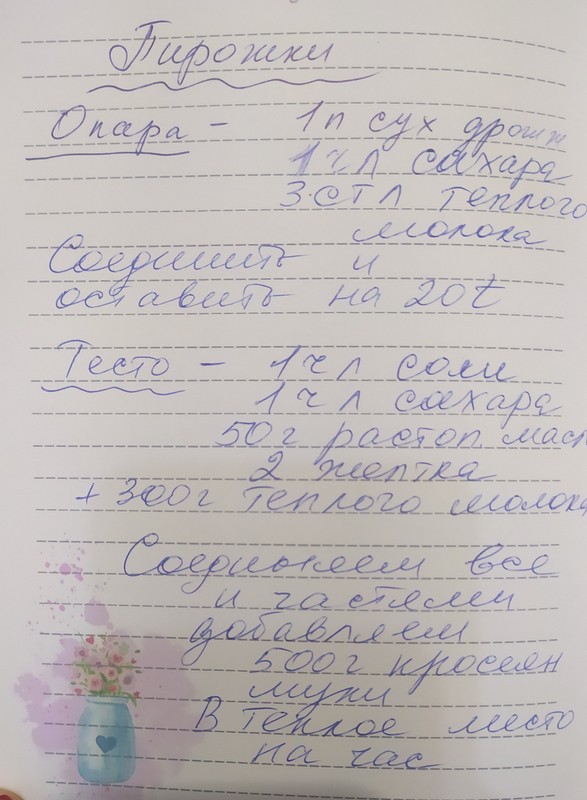 Пирожки
Опара - 1п сух дрожж
1 ч л сахара
3 ст л теплого
молока
Соединить и
оставить на 20t
Тесто - 1 ч л соли
1 ч л сахара
50 г растоп. масл
2 желтка
+ 300 г теплого молока
Соединяем все
и частями
добавляем
500 г просеян
муки
В теплое место
на час